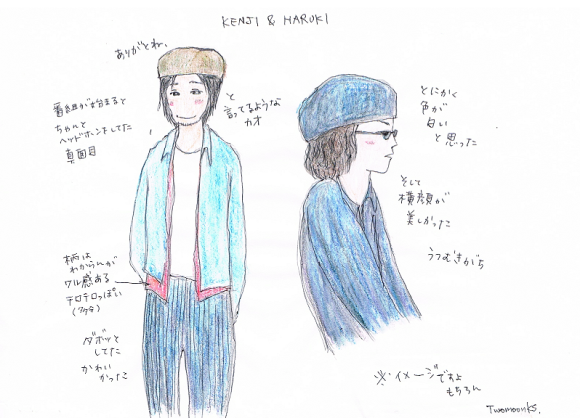 KENJI & HARUKI
ありがとね、
と
言ってるような
カオ
番組が始まると
ちゃんと
ヘッドホンをしてた
真面目
柄は
わからんが
ワル感ある
テロテロっぽい
(多分)
ダボッと
してた
かわい
かった
とにかく
色が
白い
と思った
そして
横顔が
美しかった
うつむきがち
※イメージですよ
もちろん
Twomoonks.